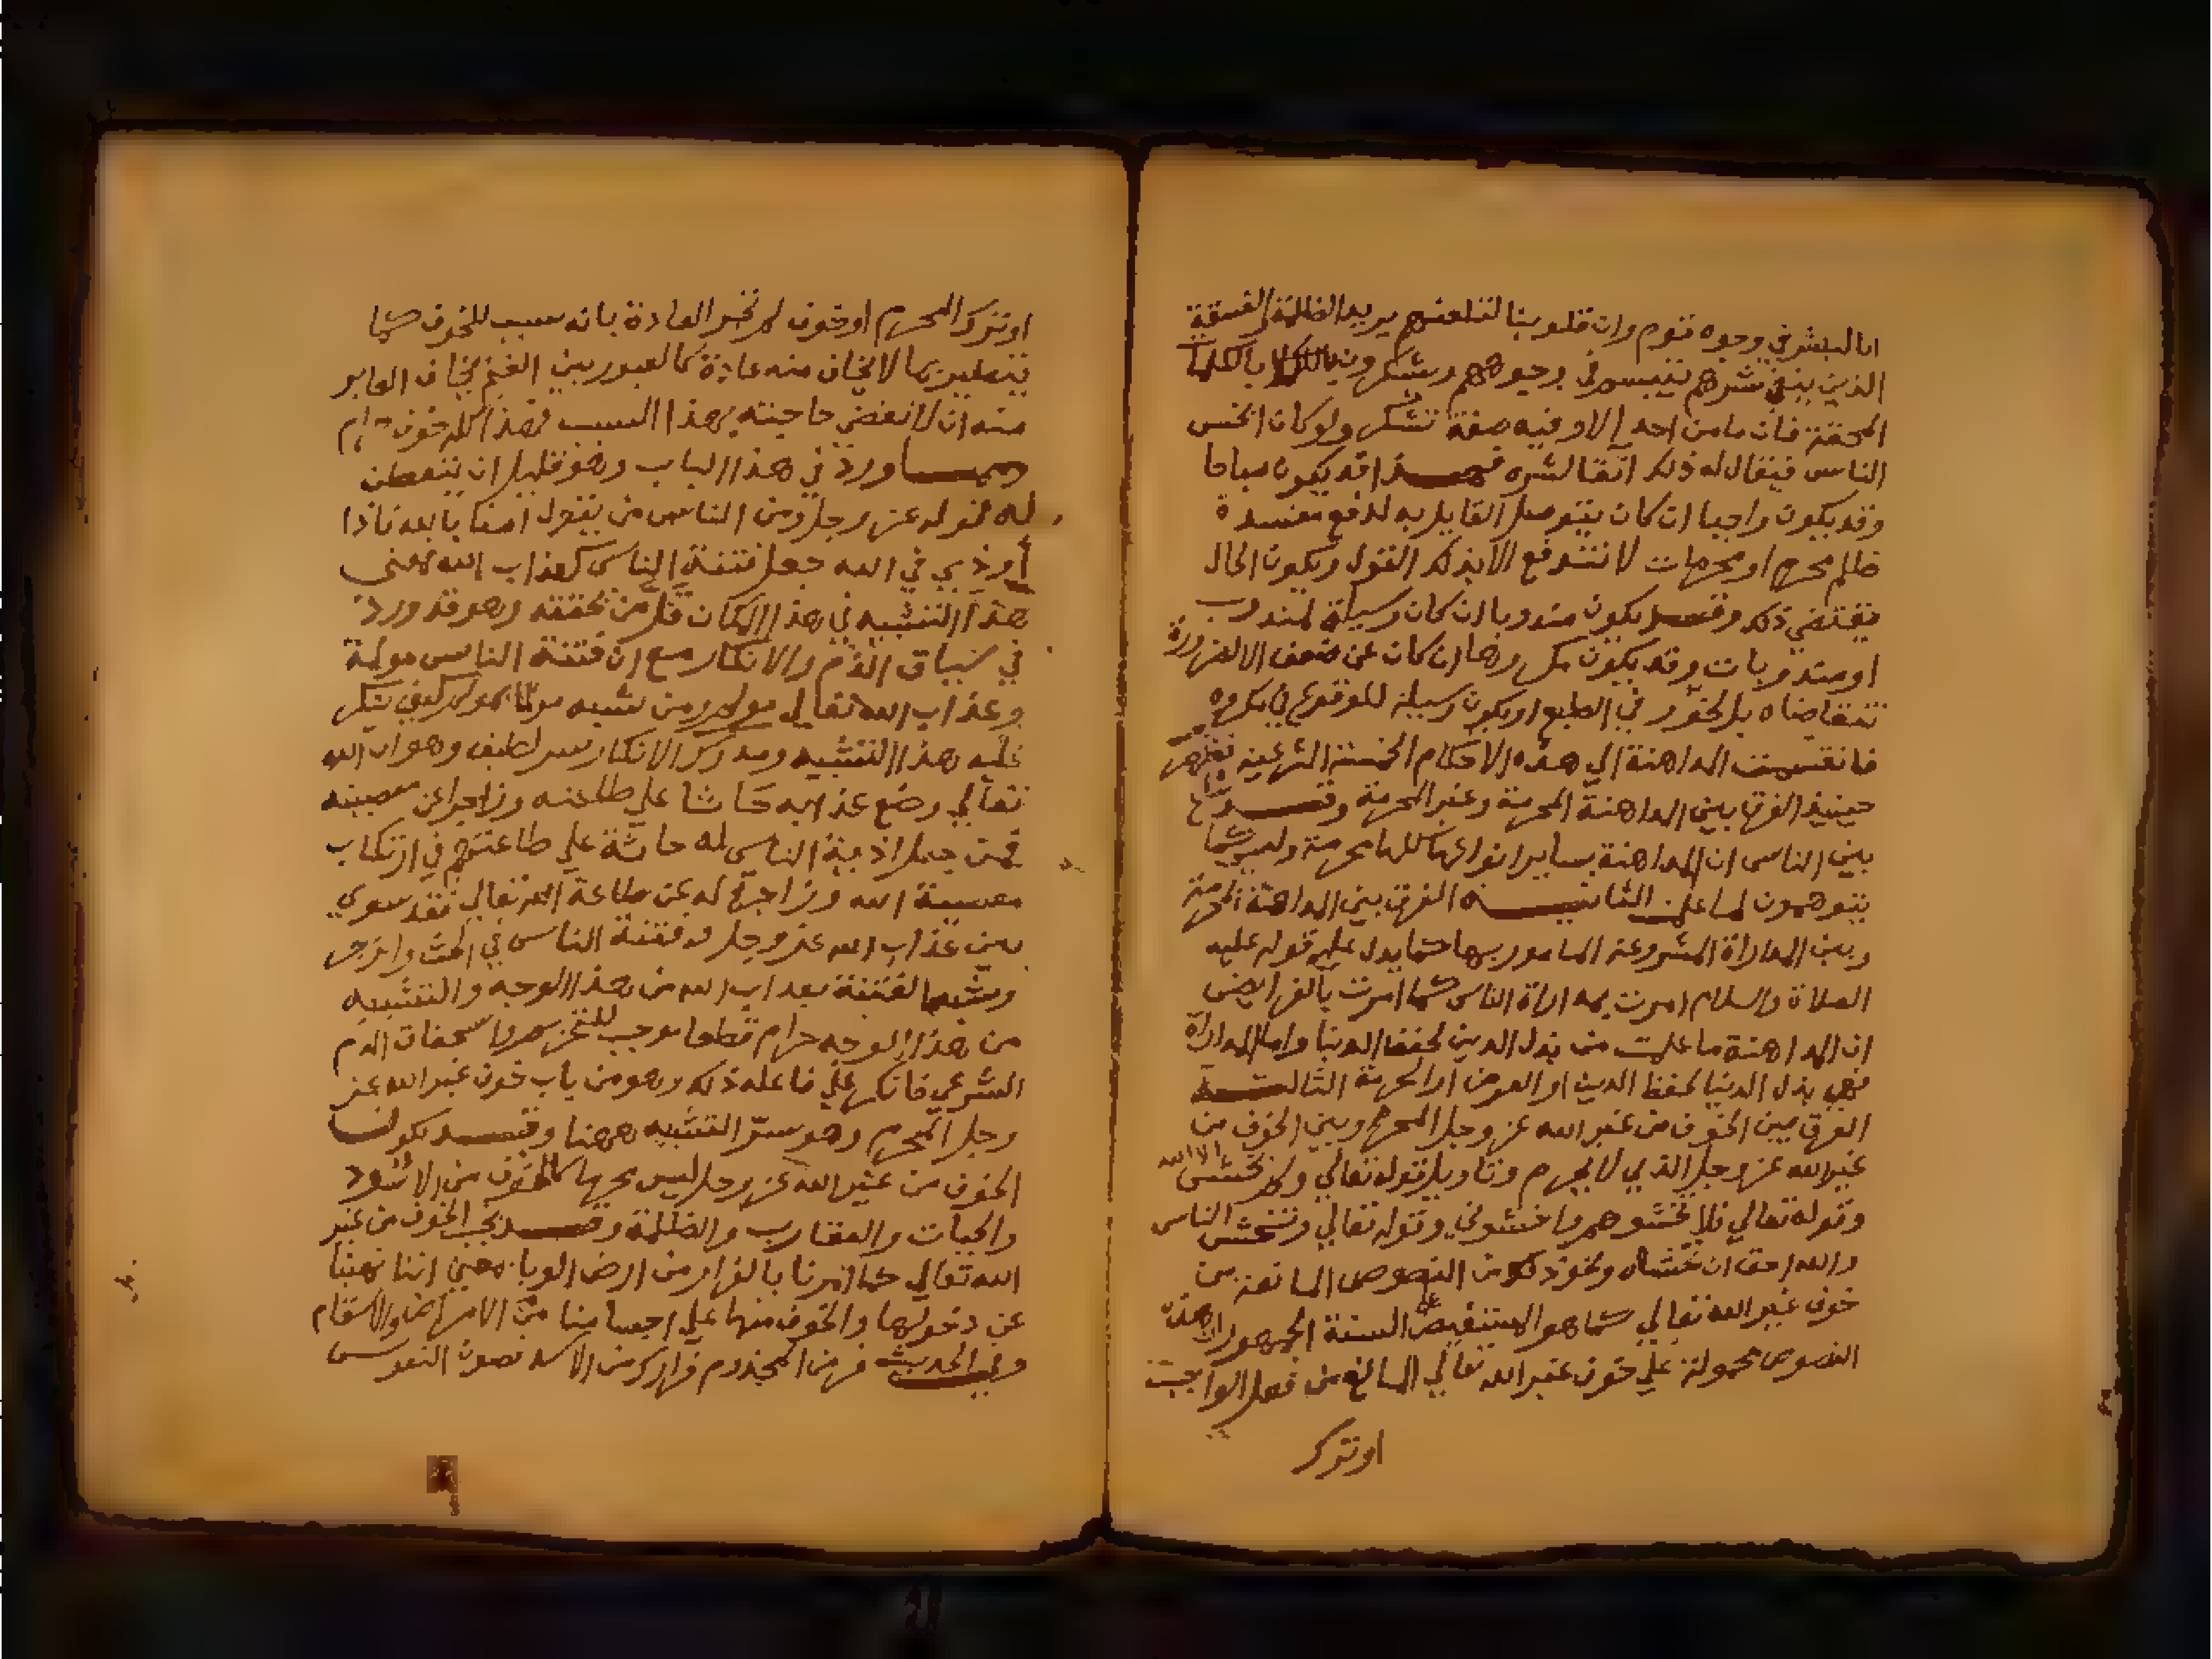 انا لنبش في وجوه قوم وان قلوبنا لتلعنهم يريد الظلمة والفسقة
الذين يتقى شرهم يتبسم في وجوههم ويشكرون بالكلمات
المحقة فان ما من احد الا وفيه صفة تشكر ولو كان انحس
الناس فيقال له ذلك اتقا لشره فهذا قد يكون مباحا
وقد يكون واجبا ان كان يتوصل القايل به لدفع مفسدة
ظلم محرم او محرمات لا تندفع الا بذلك القول ويكون الحال
يقتضي ذلك وقد يكون مندوبا ان كان وسيلة لمندوب
او مندوبات وقد يكون مكروها ان كان عن ضعف لا لضرورة
تتقاضاه بل لخور في الطبع او يكون وسيلة للوقوع في مكروه
فانقسمت المداهنة الي هذه الاحكام الخمسة الشرعية فظهر
حينيذ الفرق بين المداهنة المحرمة وغير المحرمة وقد شاع
بين الناس ان المداهنة بساير انواعها كلها محرمة وليس كما
يتوهمون لما علمت الثانية الفرق بين المداهنة المحرمة
وبين المداراة المشروعة المامور بها كما يدل عليه قوله عليه
الصلاة والسلام امرت بمداراة الناس كما امرت بالفرايض
ان المداهنة ما علمت من بذل الدين لحفظ الدنيا واما المداراة
فهي بذل الدنيا لحفظ الدين او العرض او الحرمة الثالثة
الفرق بين الخوف من غير الله عز وجل المحرم وبين الخوف من
غير الله عز وجل الذي لا يحرم وتاويل قوله تعالي ولم يخش الا الله
وقوله تعالي فلا تخشوهم واخشوني وقوله تعالي وتخشى الناس
والله احق ان تخشاه ونحو ذلك من النصوص المانعة من
خوف غير الله تعالي كما هو المستفيض على السنة الجمهور ان هذه
النصوص محمولة علي خوف غير الله تعالي المانع من فعل الواجب
او ترك
او ترك المحرم او خوف لم تجر العادة بانه سبب للخوف كما
يتطير بما لا يخاف منه عادة كالعبور بين الغنم يخاف العابر
منه ان لا تقضى حاجته بهذا السبب فهذا كله خوف حرام
ومما ورد في هذا الباب وهو قليل ان يتفطن
له قوله عز وجل ومن الناس من يقول امنا بالله فاذا
أوذي في الله جعل فتنة الناس كعذاب الله فمعنى
هذا التشبيه في هذا المكان قل من يحققه وهو قد ورد
في سياق الذم والانكار مع ان فتنة الناس مولمة
وعذاب الله تعالي مولم ومن شبه مولما بمولم كيف ينكر
عليه هذا التشبيه ومدرك الانكار سر لطيف وهو ان الله
تعالي وضع عذابه حاثا علي طاعته وزاجرا عن معصيته
فمن جعل اذية الناس له حاثة علي طاعتهم في ارتكاب
معصية الله وزاجرة له عن طاعة الله تعالي فقد سوي
بين عذاب الله عز وجل وفتنة الناس في الحث والزجر
وشبه الفتنة بعذاب الله من هذا الوجه والتشبيه
من هذا الوجه حرام قطعا موجب للتحريم واستحقاق الذم
الشرعي فانكر علي فاعله ذلك وهو من باب خوف غير الله عز
وجل المحرم وهو سر التشبيه ههنا وقد يكون
الخوف من غير الله عز وجل ليس محرما كالخوف من الاسود
والحيات والعقارب والظلمة وقد يجب الخوف من غير
الله تعالي كما امرنا بالفرار من ارض الوبا بمعنى اننا نهينا
عن دخولها والخوف منها علي اجسامنا من الامراض والاسقام
وفي الحديث فر من المجذوم فرارك من الاسد فصون النفوس